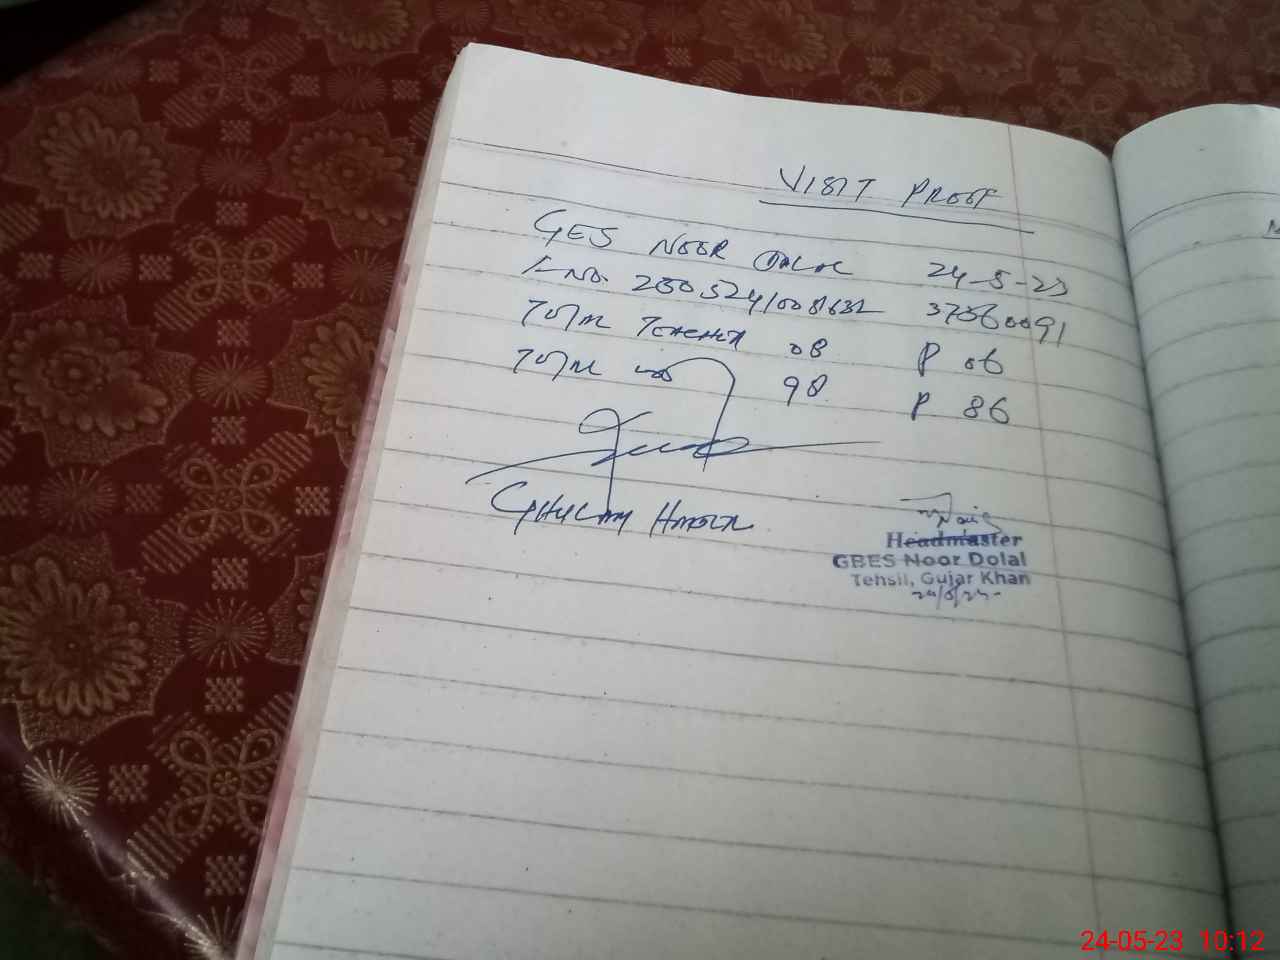 VISIT PROOF
GES NOOR DALAL 24-5-23
37360091
TOTAL TEACHER 08 P 06
TOTAL 98 P 86
GHULAM
Headmaster
GBES Noor Dolal
Tehsil, Gujar Khan
24/5/23
24-05-23 10:12